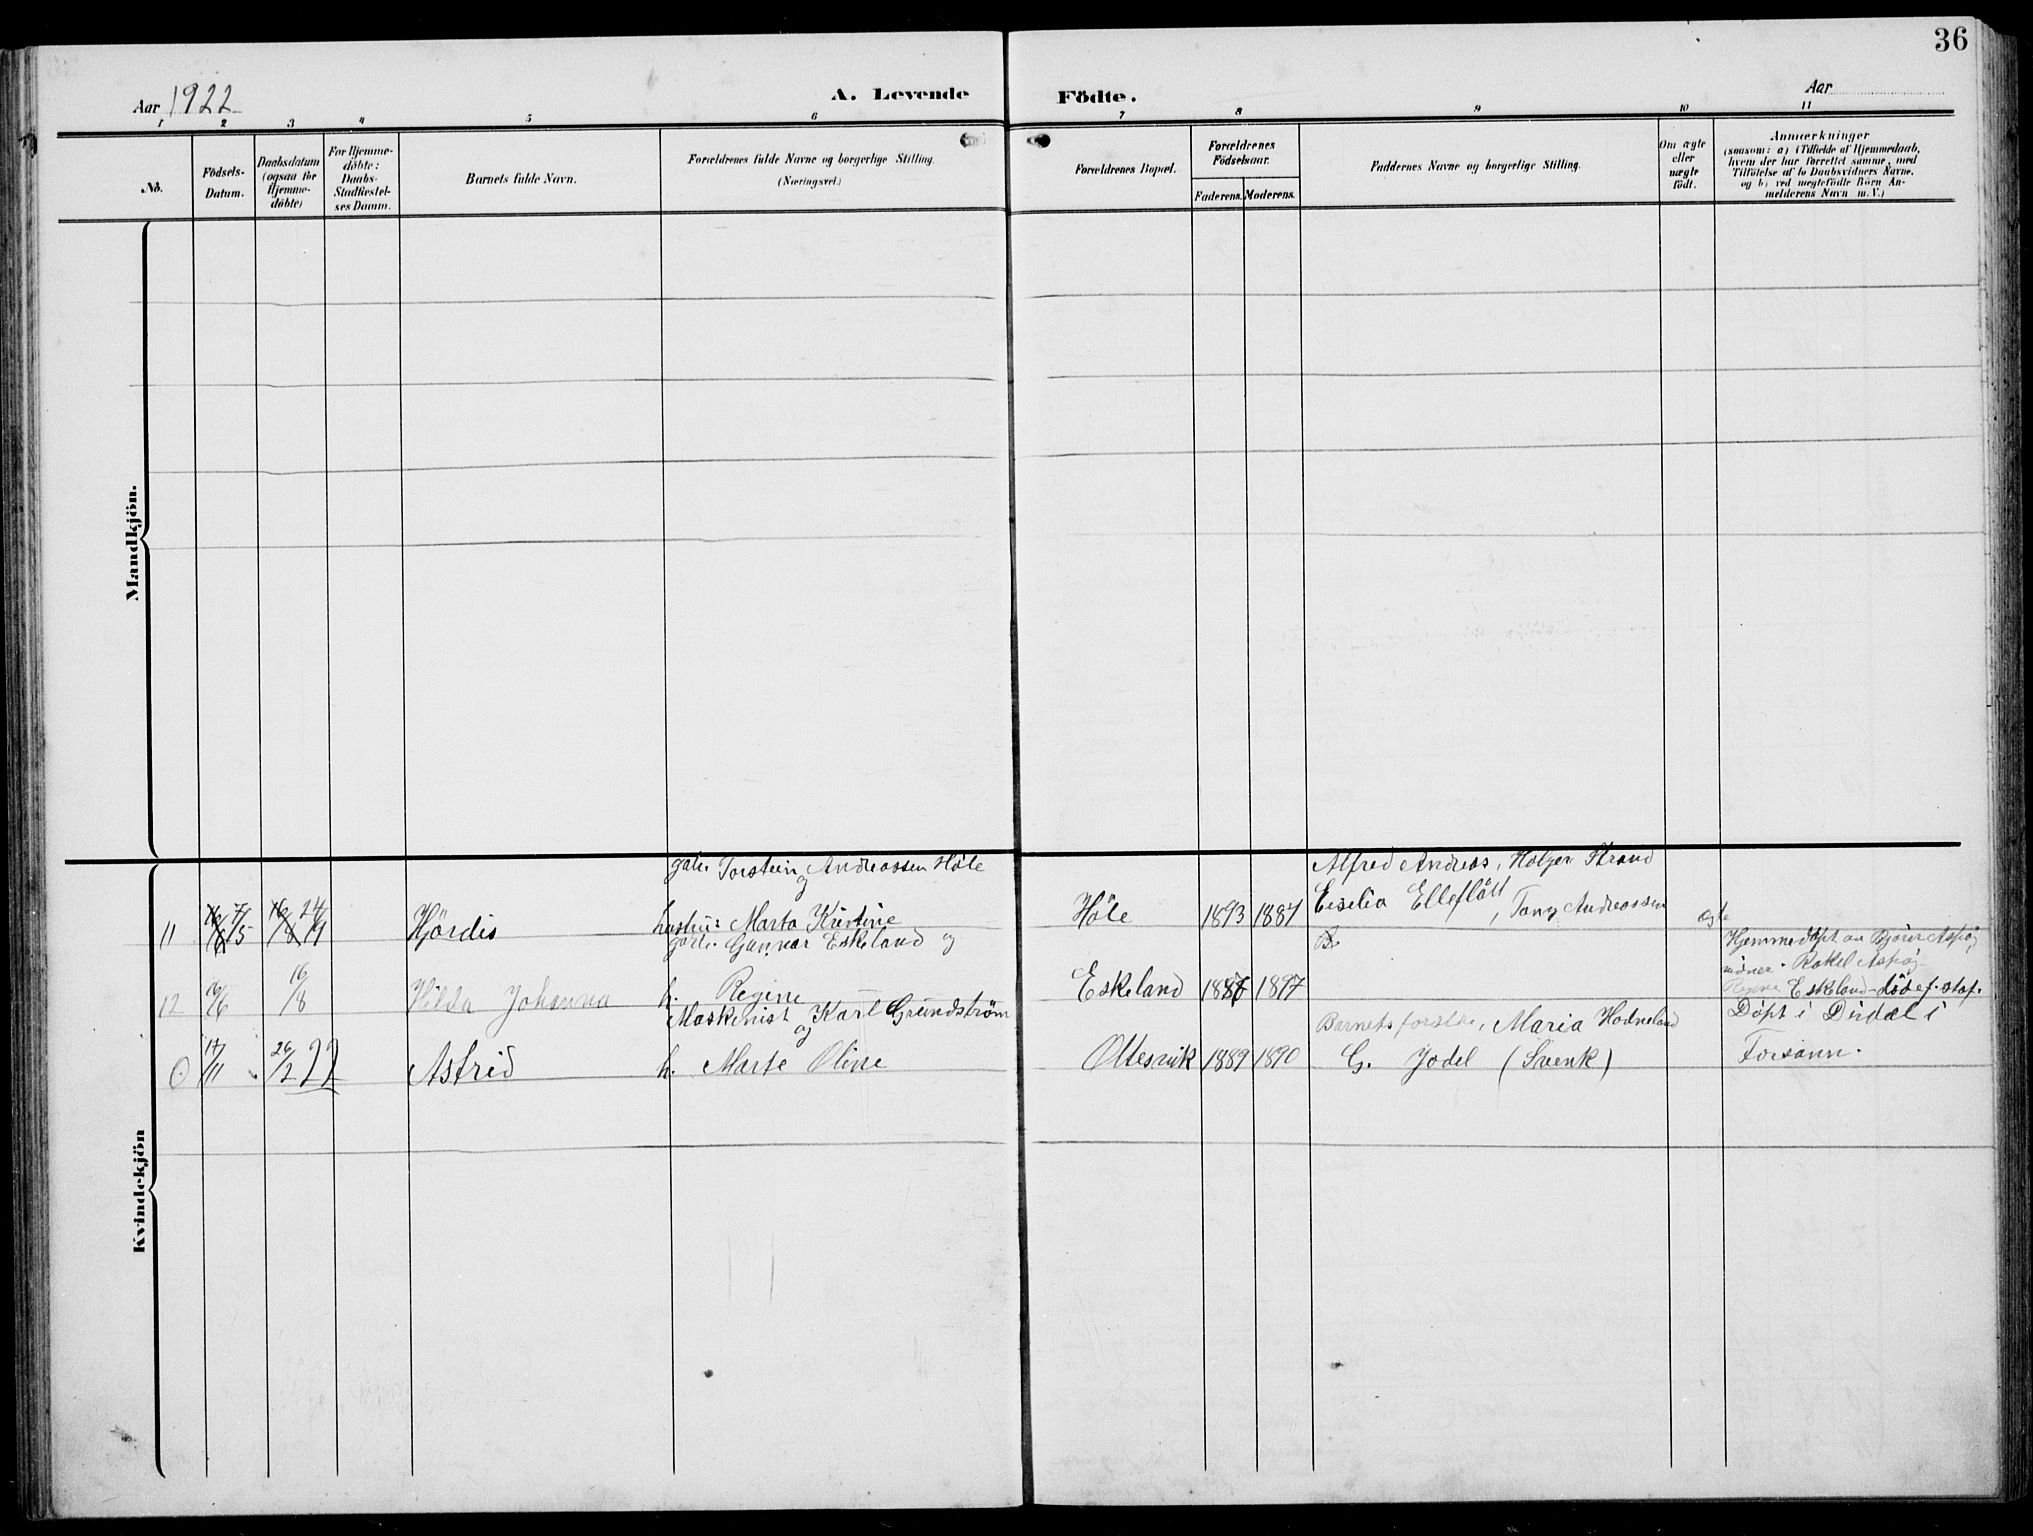 36
Aar 1922
A. Levende Födte.
Aar
1 2 3 4 5 6 7 8 9 10 11
No.
Födsels-
Datum.
Daabsdatum
(ogsaa for
Hjemme-
döbte)
For Hjemme-
döbte:
Daabs-
Stadfæstel-
ses Datum.
Barnets fulde Navn.
Forældrenes fulde Navne og borgerlige Stilling.
(Næringsvei.)
Forældrenes Bopæl.
Forældrenes
Födselsaar.
Faderens. Moderens.
Faddernes Navne og borgerlige Stilling.
Om ægte
eller
uægte
födt.
Anmærkninger
(saasom: a) i Tilfælde af Hjemmedaab,
hvem der har forrettet samme, med
Tilföielse af to Daabsvidners Navne.
og b) ved uægtefödte Börn An-
melderens Navn m. V.)
Mandkjön.
Kvindekjön
gaar. Torstein Andreassen Høle
og
Alfred Andreas, Holger Strand
11 7/5 24/9 Hjördis hustru: Marta Kristine Høle 1893 1887
Elleflått, Tony Andreassen
ægte
gaar. Gunnar Eskeland og
Hjemmedøpt av
Rakel
12 /6 16/8 Hilda Johanna h. Regine Eskeland 1887 1897
Regine Eskeland
Maskinist Karl Grundström
og
Barnets forældre, Maria Hodneland
Døpt i Dirdal i
0 17/11 26/2 22 Astrid h. Marte Oline Oltesvik 1889 1890 G. Jodel (Svensk)
Forsann.